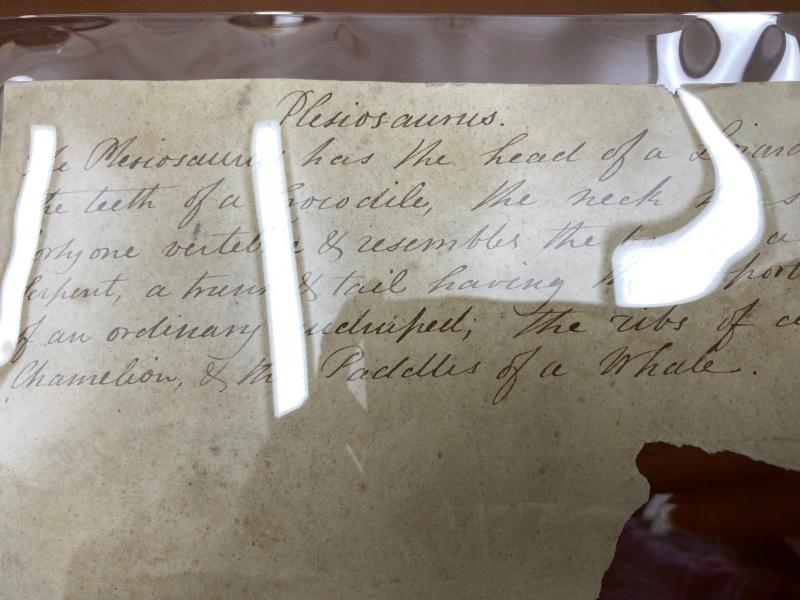 Plesiosaurus.
Plesiosaurus has the head of a Lizard
the teeth of a Crocodile, the neck
vertebrae & resembles the a
Serpent, a trunk & tail having
of an ordinary the ribs of a
Chamelion, & the Paddles of a Whale.